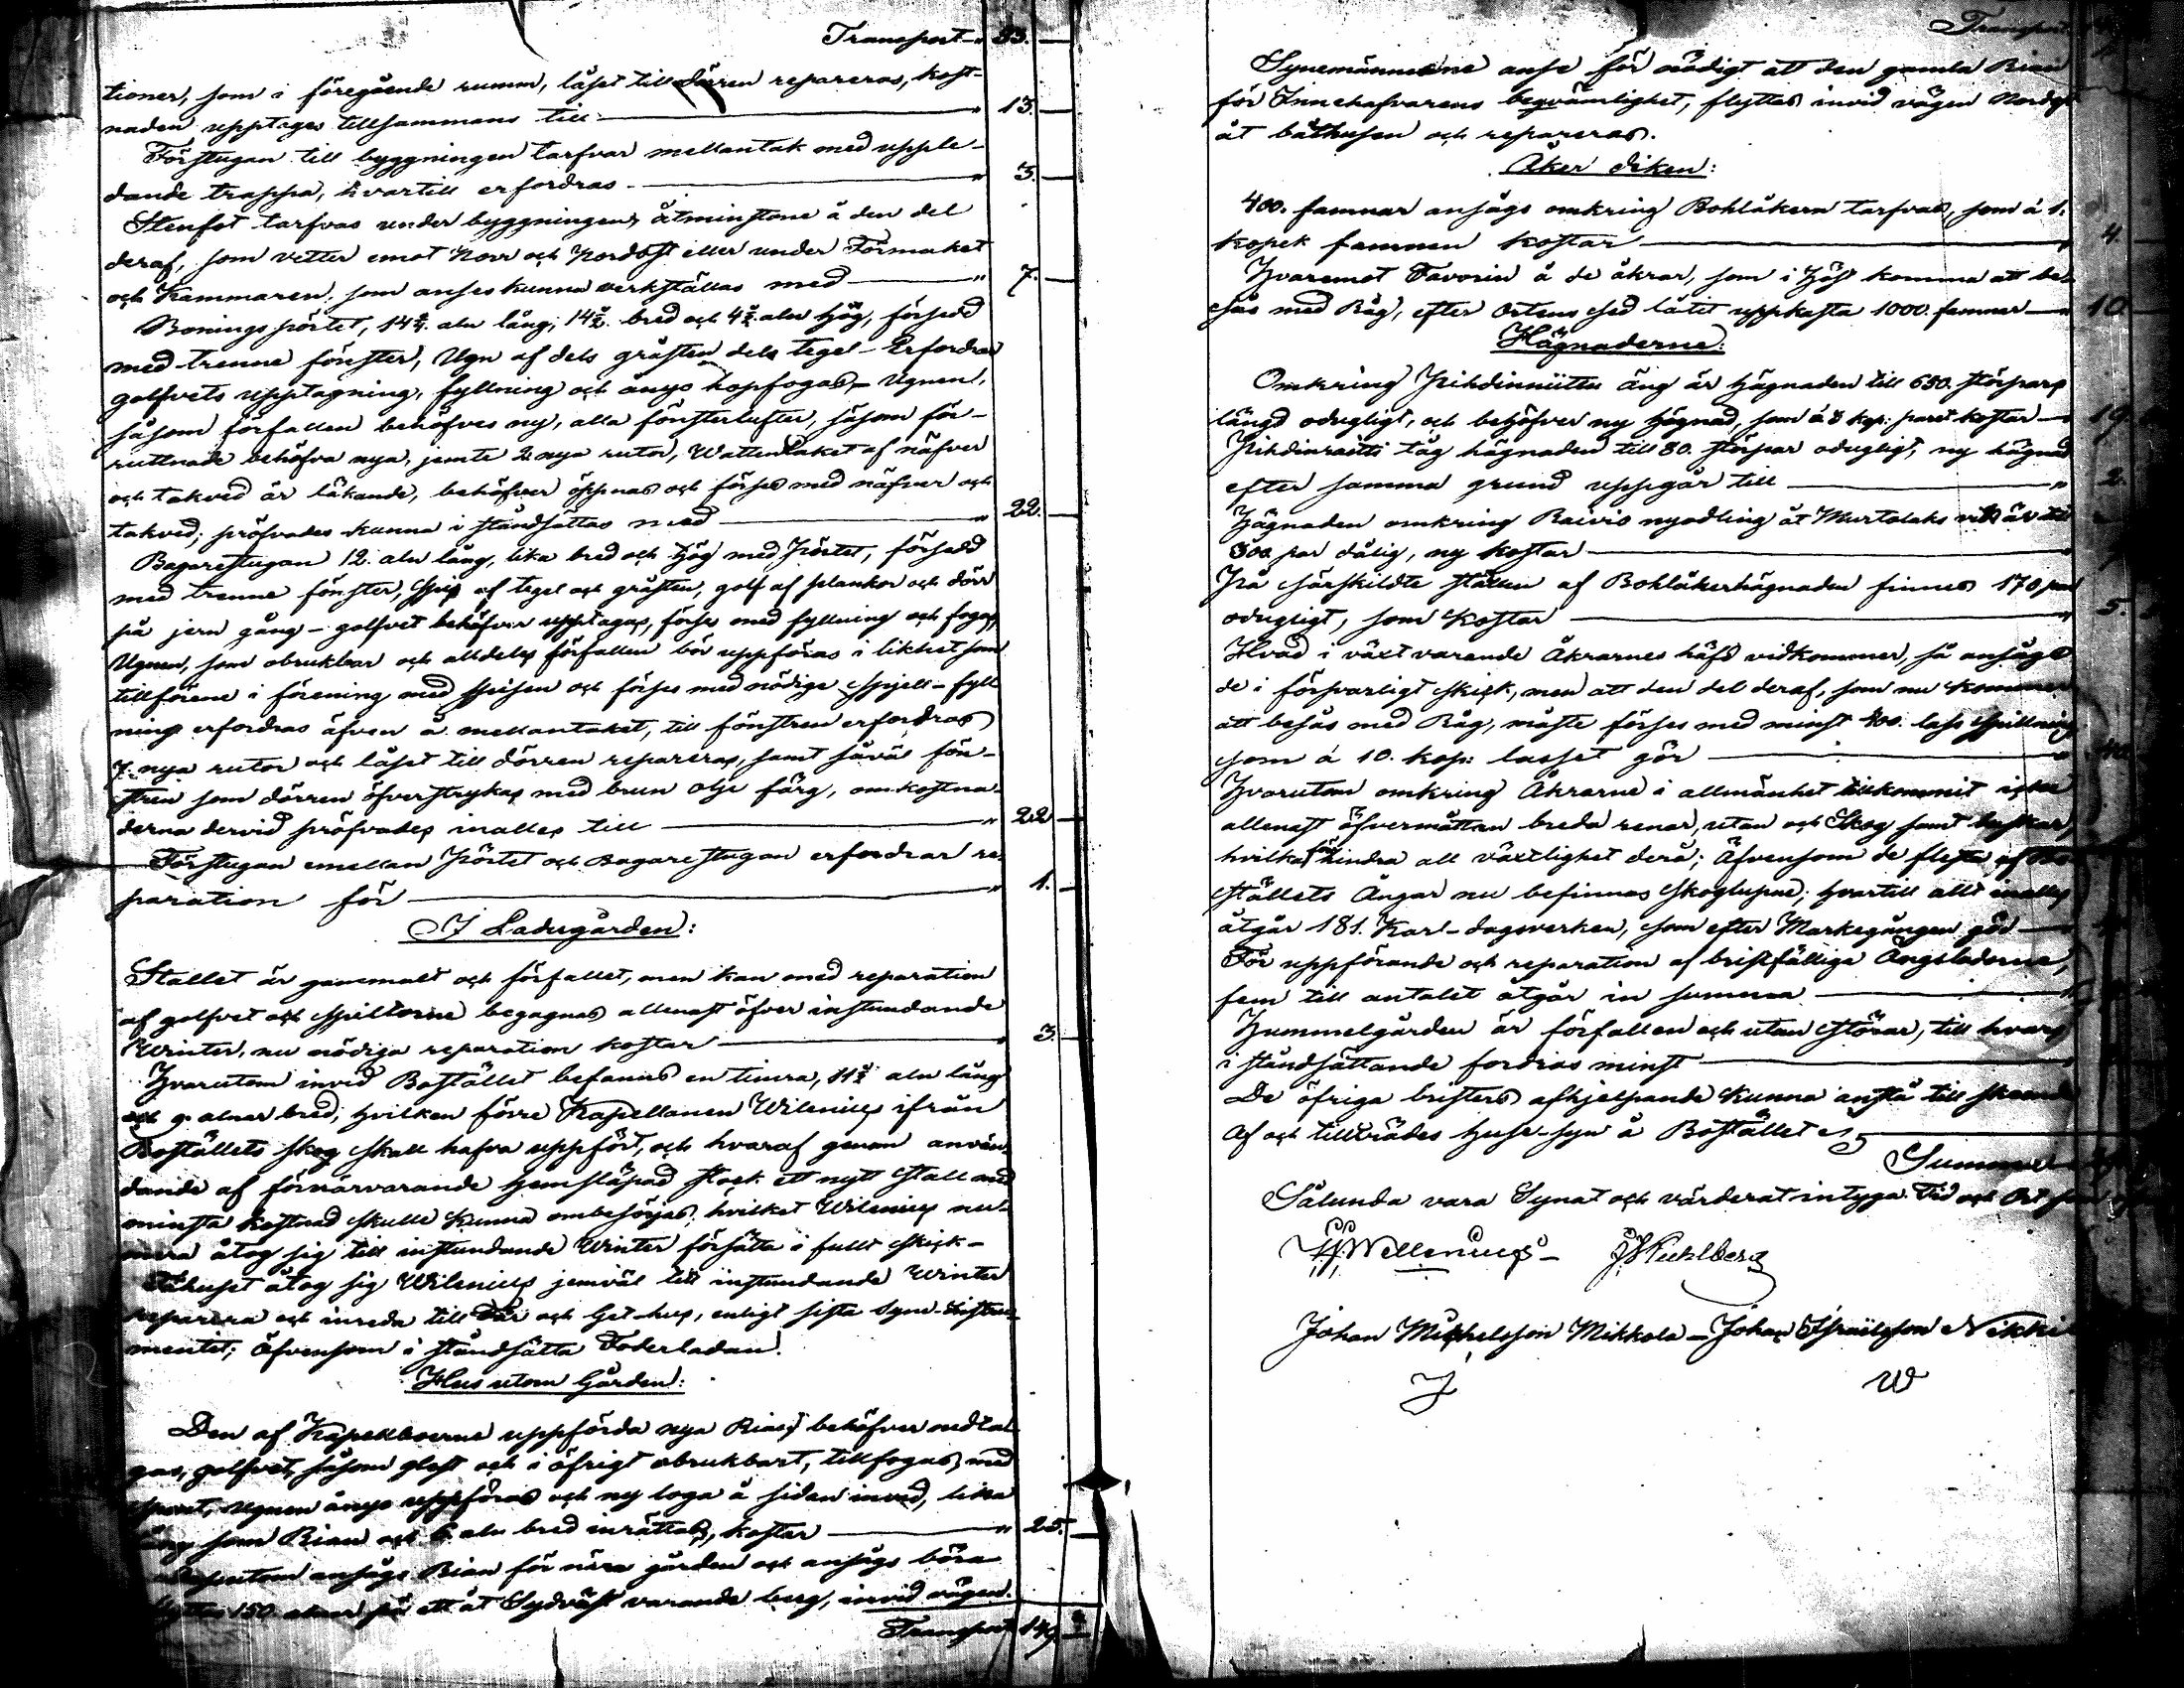 Transport " 53. —
tioner, som i föregående rumm, låset till dörren repareras, kost-
naden upptages tillsammans till — " 13. —
Förstugan till byggningen tarfvar mellantak med upple-
dande trappa, hvartill erfordras — " 3. —
Stenfot tarfvas under byggningen, åtminstone å den del
deraf, som vetter emot Norr och Nordost eller under Förmaket
och Kammaren, som anses kunna verkställas med — " 7. —
Bonings pörtet, 14 aln lång, 14 bred och 4 aln hög, försedd
med trenne fönster, Ugn af dels gråsten dels tegel - Erfordras
golfvets upptagning, fyllning och ånyo hopfogas, - Ugnen,
såsom förfallen behöfves ny, alla fönsterlufter, såsom för-
ruttnade behöfva nya, jemte 2 nya rutor, Wattentaket af näfver
och takved är läkande, behöfver öppnas och förses med näfver och
takved, pröfvades kunna i ståndsättas med — " 22. —
Bagarestugan 12. aln lång, lika bred och hög med Pörtet, försedd
med trenne fönster, Spis af tegel och gråsten, golf af plankor och dörr
på jern gång - golfvet behöfver upptagas, förses med fyllning och fogas,
Ugnen, som obrukbar och alldeles förfallen bör uppföras i likhet som
tillförene i förening med spisen och förses med nödige spjell - fyll
ning erfordras äfven å mellantaket, till fönstren erfordras
7. nya rutor och låset till dörren repareras, samt såväl fön-
stren som dörren öfverstrykas med brun olje färg, omkostna-
derna dervid pröfvades inalles till — " 22 —
Förstugan emellan Pörtet och Bagarestugan erfordrar re-
paration för — " 1. —
I Ladugården:
Stallet är gammalt och förfallet, men kan med reparation
af golfvet och spiltorne begagnas allenast öfver instundande
Winter, nu nödiga reparation kostar — " 3. —
Hvarutom invid Bostället befanns en timra, 11 aln lång
och 9. alnar bred, hvilken förre Kapellanen Wilenius ifrån
Boställets skog skall hafva uppfört, och hvaraf genom använ-
dande af förnärvarande hemsläpad stock ett nytt stall med
minsta kostnad skulle kunna ombesörjas, hvilket Wilenius nu-
mera åtog sig till instundande Winter försätta i fullt skick -
Fähuset åtog sig Wilenius jemväl till instundande Winter
reparera och inreda till Får och Get-hus, enligt sista Syne-Instru-
mentet; Äfvensom i ståndsätta Foderladan.
Hus utom Gården:
Den af Kapellboerne uppförda nya Rian, behöfver nedta-
gas, golfvet, såsom glest och i öfrigt obrukbart, tillfogas med
spont, ugnen ånyo uppföras och ny loga å sidan invid, lika
lång som Rian och 6 aln bred inrättas, kostar — " 25. —
Dessutom ansågs Rian för nära gården och ansågs böra
flyttas 150 alnar på ett åt Sydväst varande berg, invid vägen.
Transport 149. —
Transport
Synemännerne anse för nödigt att den gamla Rian
för Innehafvarens beqvämlighet, flyttas invid vägen Nordost
åt båthusen och repareras.
Åker diken:
400. famnar ansågs omkring Bohlåkern tarfvas, som á 1.
kopek famnen kostar — 4. —
Hvaremot Favorin å de åkrar, som i Höst komma att be-
sås med Råg, efter Ortens sed låtit uppkasta 1000. famnar — 10
Hägnaderne:
Omkring Pihdinniittu äng är hägnaden till 650. störpars
längd odugligt, och behöfver ny hägnad, som á 3 kop: paret kostar — 19.
Pihdinraitti tåg hägnaden till 80. störpar odugligt, ny hägnad
efter samma grund uppgår till — 2.
Hägnaden omkring Raivio nyodling åt Murtolaks vik är till
300 par dålig, ny kostar —
På särskildte ställen af Bohlåkerhägnaden finnes 170 par
odugligt, som kostar — 5.
Hvad i växt varande Åkrarnes häfd vidkommer, så ansågs
de i försvarligt skick, men att den del deraf, som nu kommer
att besås med Råg, måste förses med minst 400. lass spillning
som á 10. kop: lasset gör — 40.
Hvarutom omkring Åkrarne i allmänhet tillkommit icke
allenast öfvermåttan breda renar, utan och Skog samt buskar,
hvilka hindra all växtlighet derå; Äfvensom de flesta af Bo-
ställets Ängar nu befinnas skoglupne; hvartill allt inalles
åtgår 181. Karl-dagsverken, som efter Markegången gör —
För uppförande och reparation af bristfällige Ängsladorne,
fem till antalet åtgår in summa —
Hummelgården är förfallen och utan störar, till hvars
i ståndsättande fordras minst —
De öfriga bristers afhjelpande kunna anstå till skeende
Af och tillträdes huse-syn å Bostället
Summa
Sålunda vara Synat och värderat intyga. Tid och Ort som
Wellenius - Kuhlberg
Johan Michelsson Mikkola - Johan Israelsson Nikki